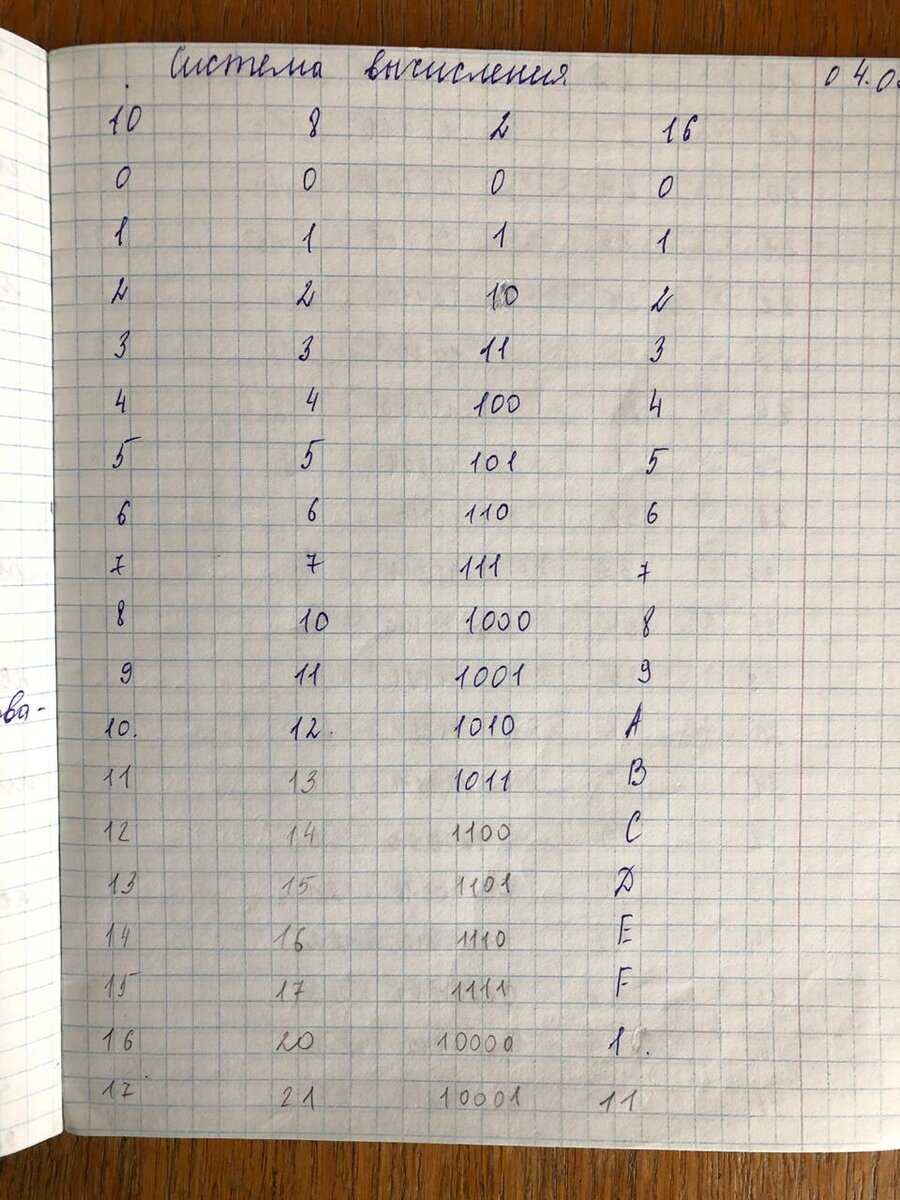 Система вычисления 04.0
10 8 2 16
0 0 0 0
1 1 1 1
2 2 10 2
3 3 11 3
4 4 100 4
5 5 101 5
6 6 110 6
7 7 111 7
8 10 1000 8
9 11 1001 9
ва-
10. 12. 1010 A
11 13 1011 B
12 14 1100 C
13 15 1101 D
14 16 1110 E
15 17 1111 F
16 20 10000 1
17 21 10001 11